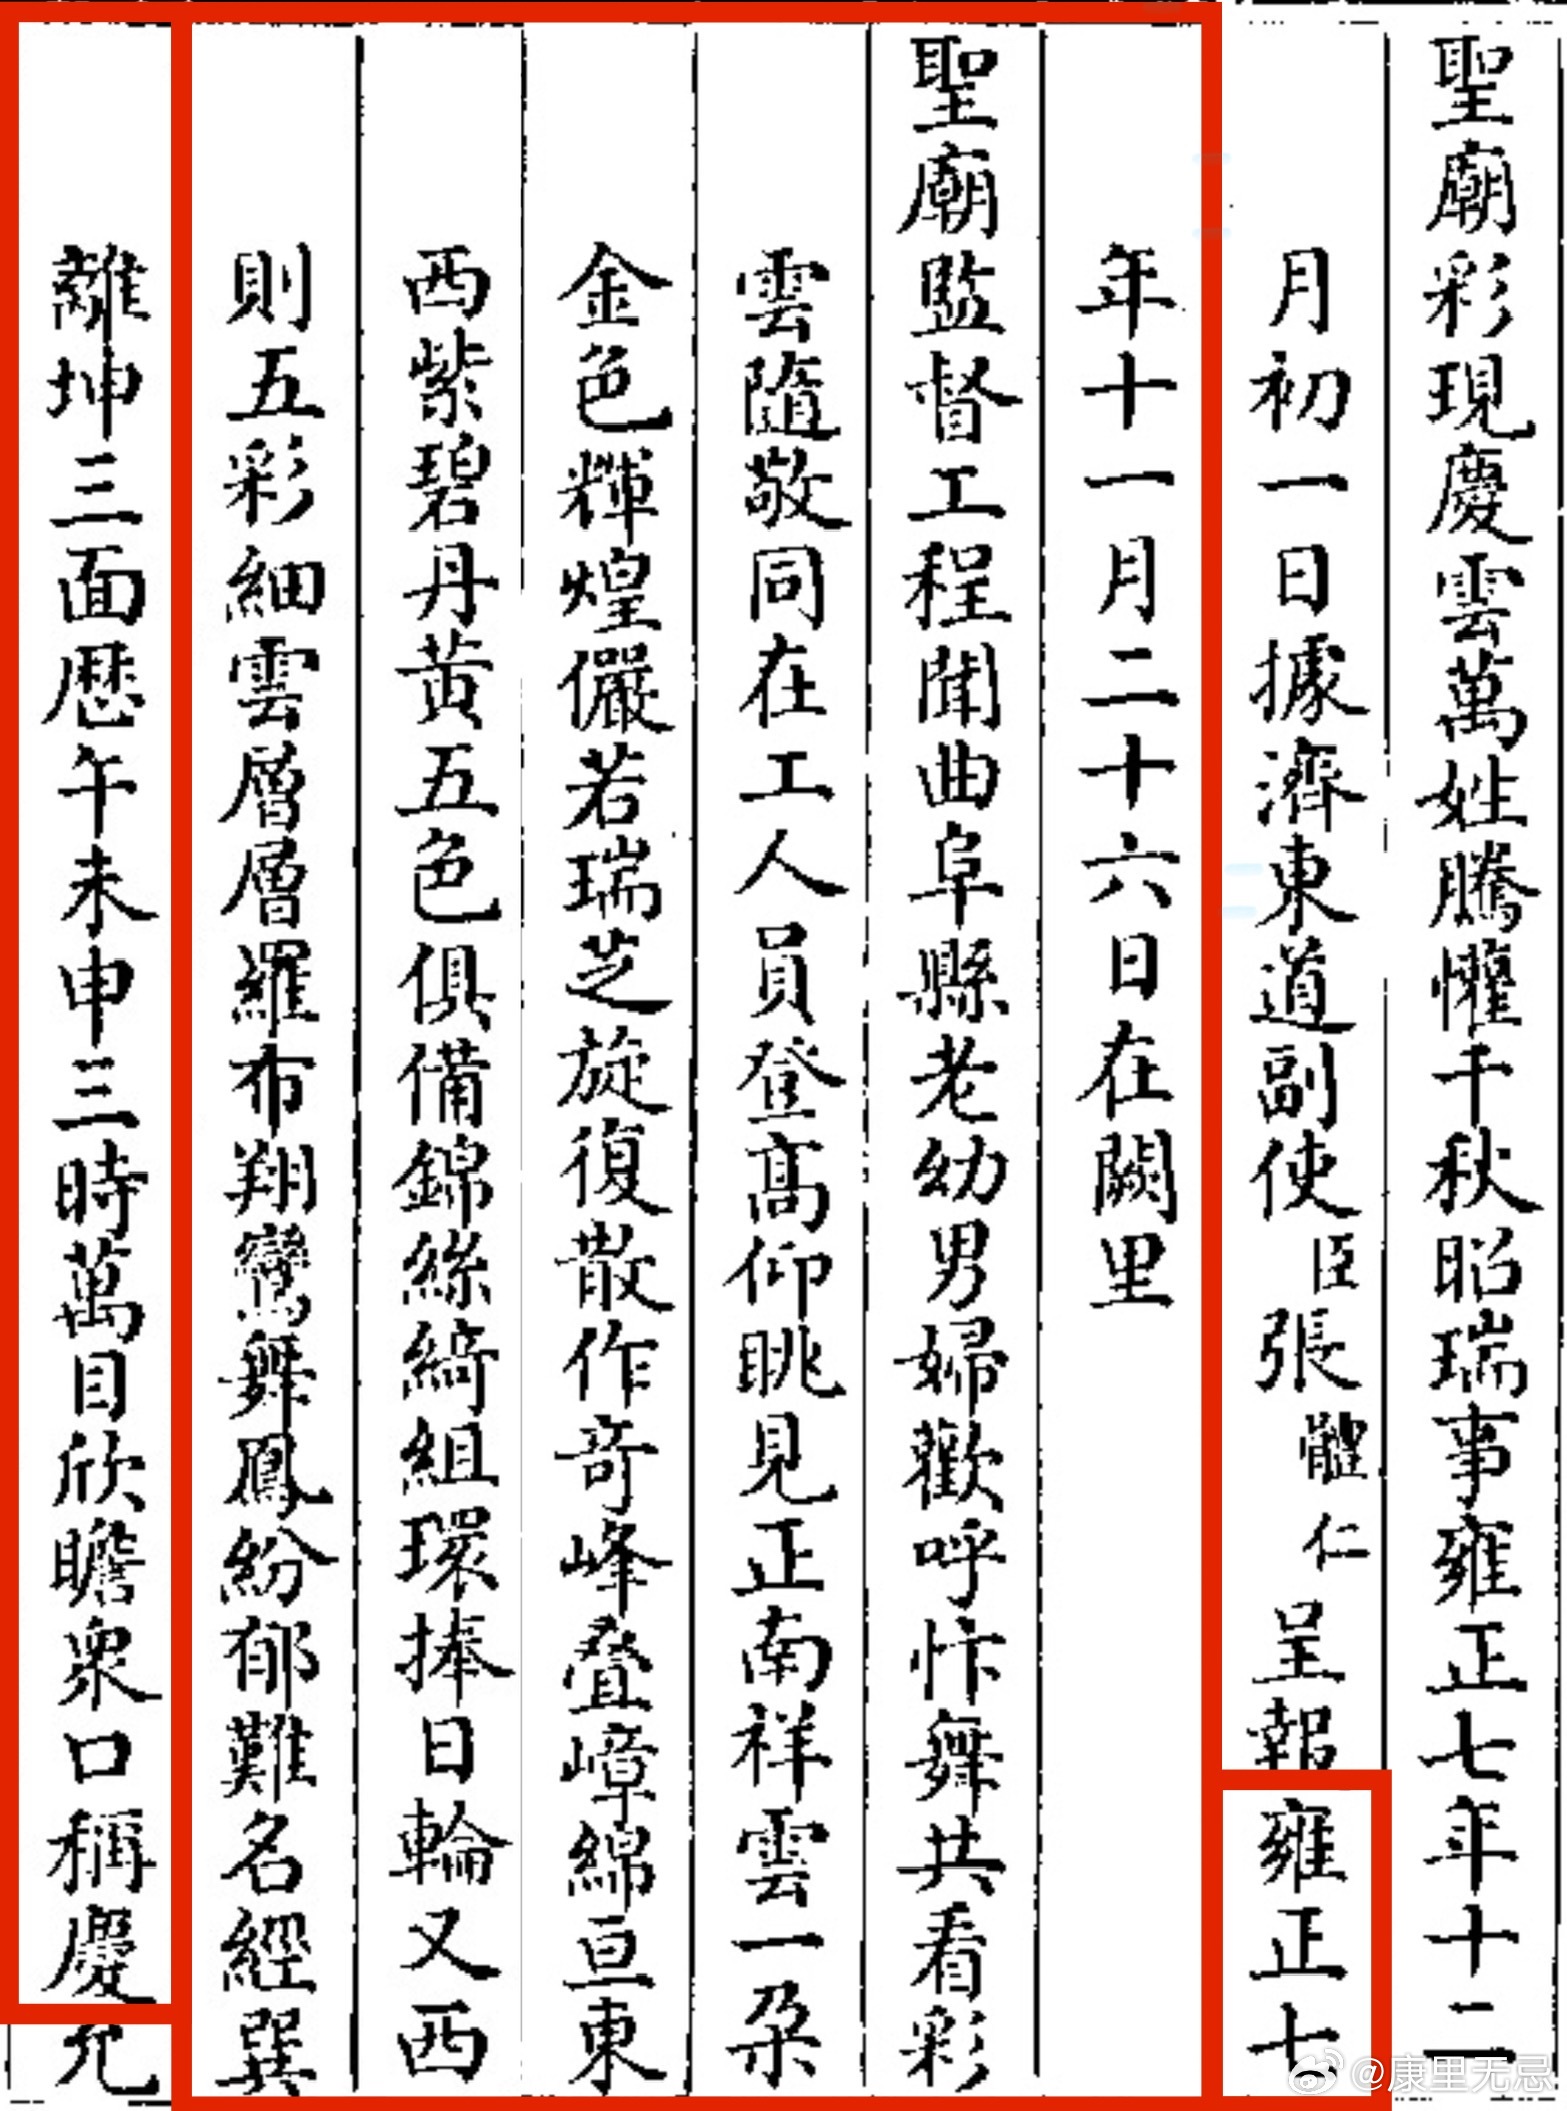 聖廟彩現慶雲萬姓騰懽千秋昭瑞事雍正七年十二
月初一日據濟東道副使臣張體仁呈報雍正七
年十一月二十六日在闕里
聖廟監督工程聞曲阜縣老幼男婦歡呼忭舞共看彩
雲隨敬同在工人員登高仰眺見正南祥雲一朶
金色輝煌儼若瑞芝旋復散作奇峰叠嶂綿亘東
西紫碧丹黄五色俱備錦絲綺組環捧日輪又西
則五彩細雲層層羅布翔鸞舞鳳紛郁難名經巽
離坤三面歷午未申三時萬目欣瞻衆口稱慶允
@康里无忌